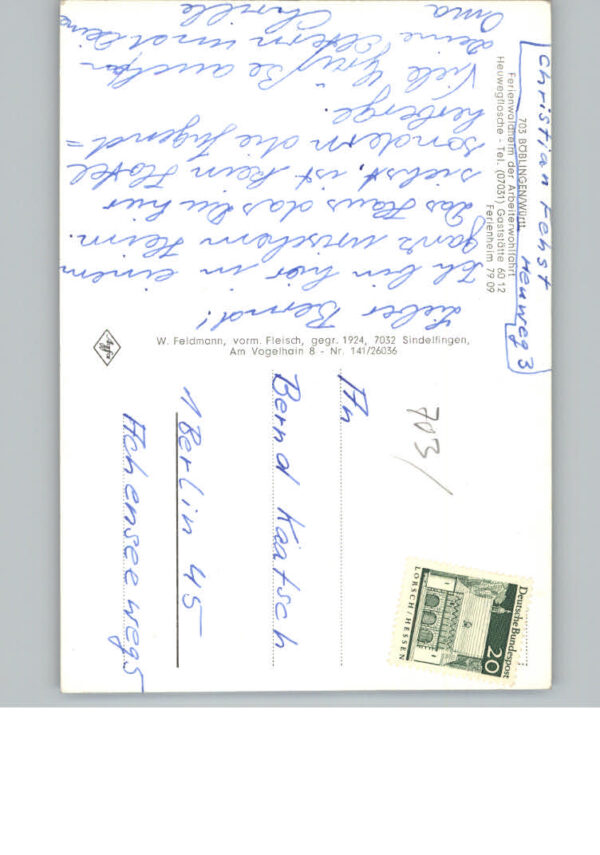 Christian Fehst
Heuweg 3
703 BÖBLINGEN/Württ.
Ferienwaldheim der Arbeiterwohlfahrt
Heuwegflosche - Tel. (07031) Gaststätte 60 12
Ferienheim 79 09
Lieber Bernd!
Ich bin hier in einem
ganz unischem Heim.
das Haus das du hier
siehst, ist kein Hotel
sondern die Jugend=
herberge.
Viele Grüße auch an
deine Eltern und deine
Oma
W. Feldmann, vorm. Fleisch, gegr. 1924, 7032 Sindelfingen,
Am Vogelhain 8 - Nr. 141/26036
Agfa
703/
An
Bernd Kaatsch
1 Berlin 45
Achenseeweg 5
Deutsche Bundespost
20
LORSCH/HESSEN